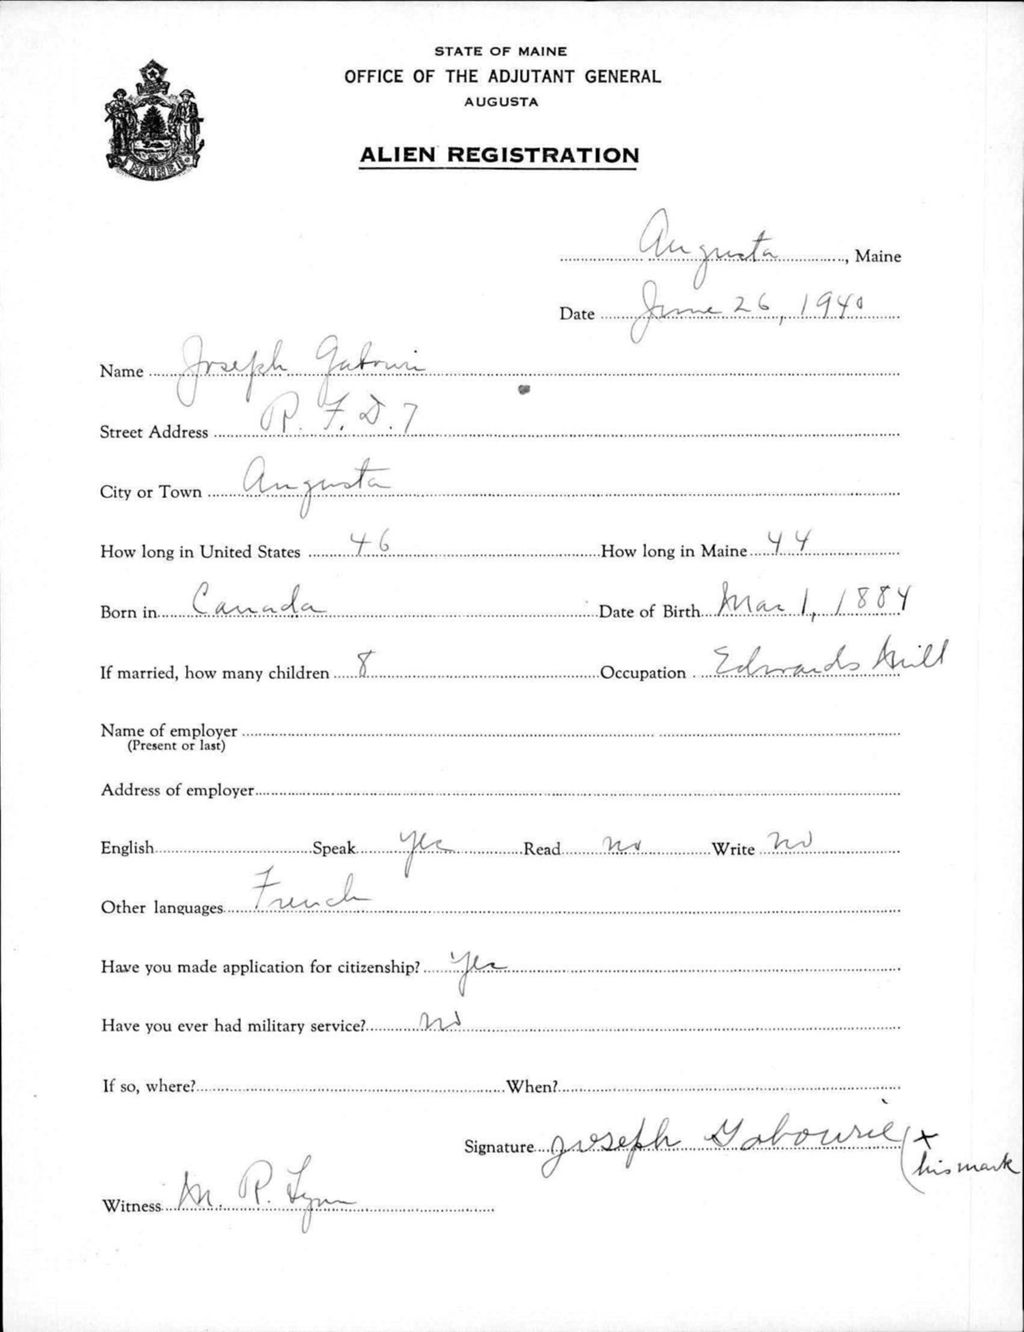 STATE OF MAINE
OFFICE OF THE ADJUTANT GENERAL
AUGUSTA
ALIEN REGISTRATION
MAINE
Augusta, Maine
Date June 26, 1940
Name Joseph Gabouri
Street Address R. F. D. 7
City or Town Augusta
How long in United States 46 How long in Maine 44
Born in Canada Date of Birth Mar 1, 1884
If married, how many children 8 Occupation Edwards Mill
Name of employer
(Present or last)
Address of employer
English Speak yes Read no Write no
Other languages French
Have you made application for citizenship? Yes
Have you ever had military service? no
If so, where? When?
Signature Joseph Gabourie (x
his mark
Witness M. R. Lynn